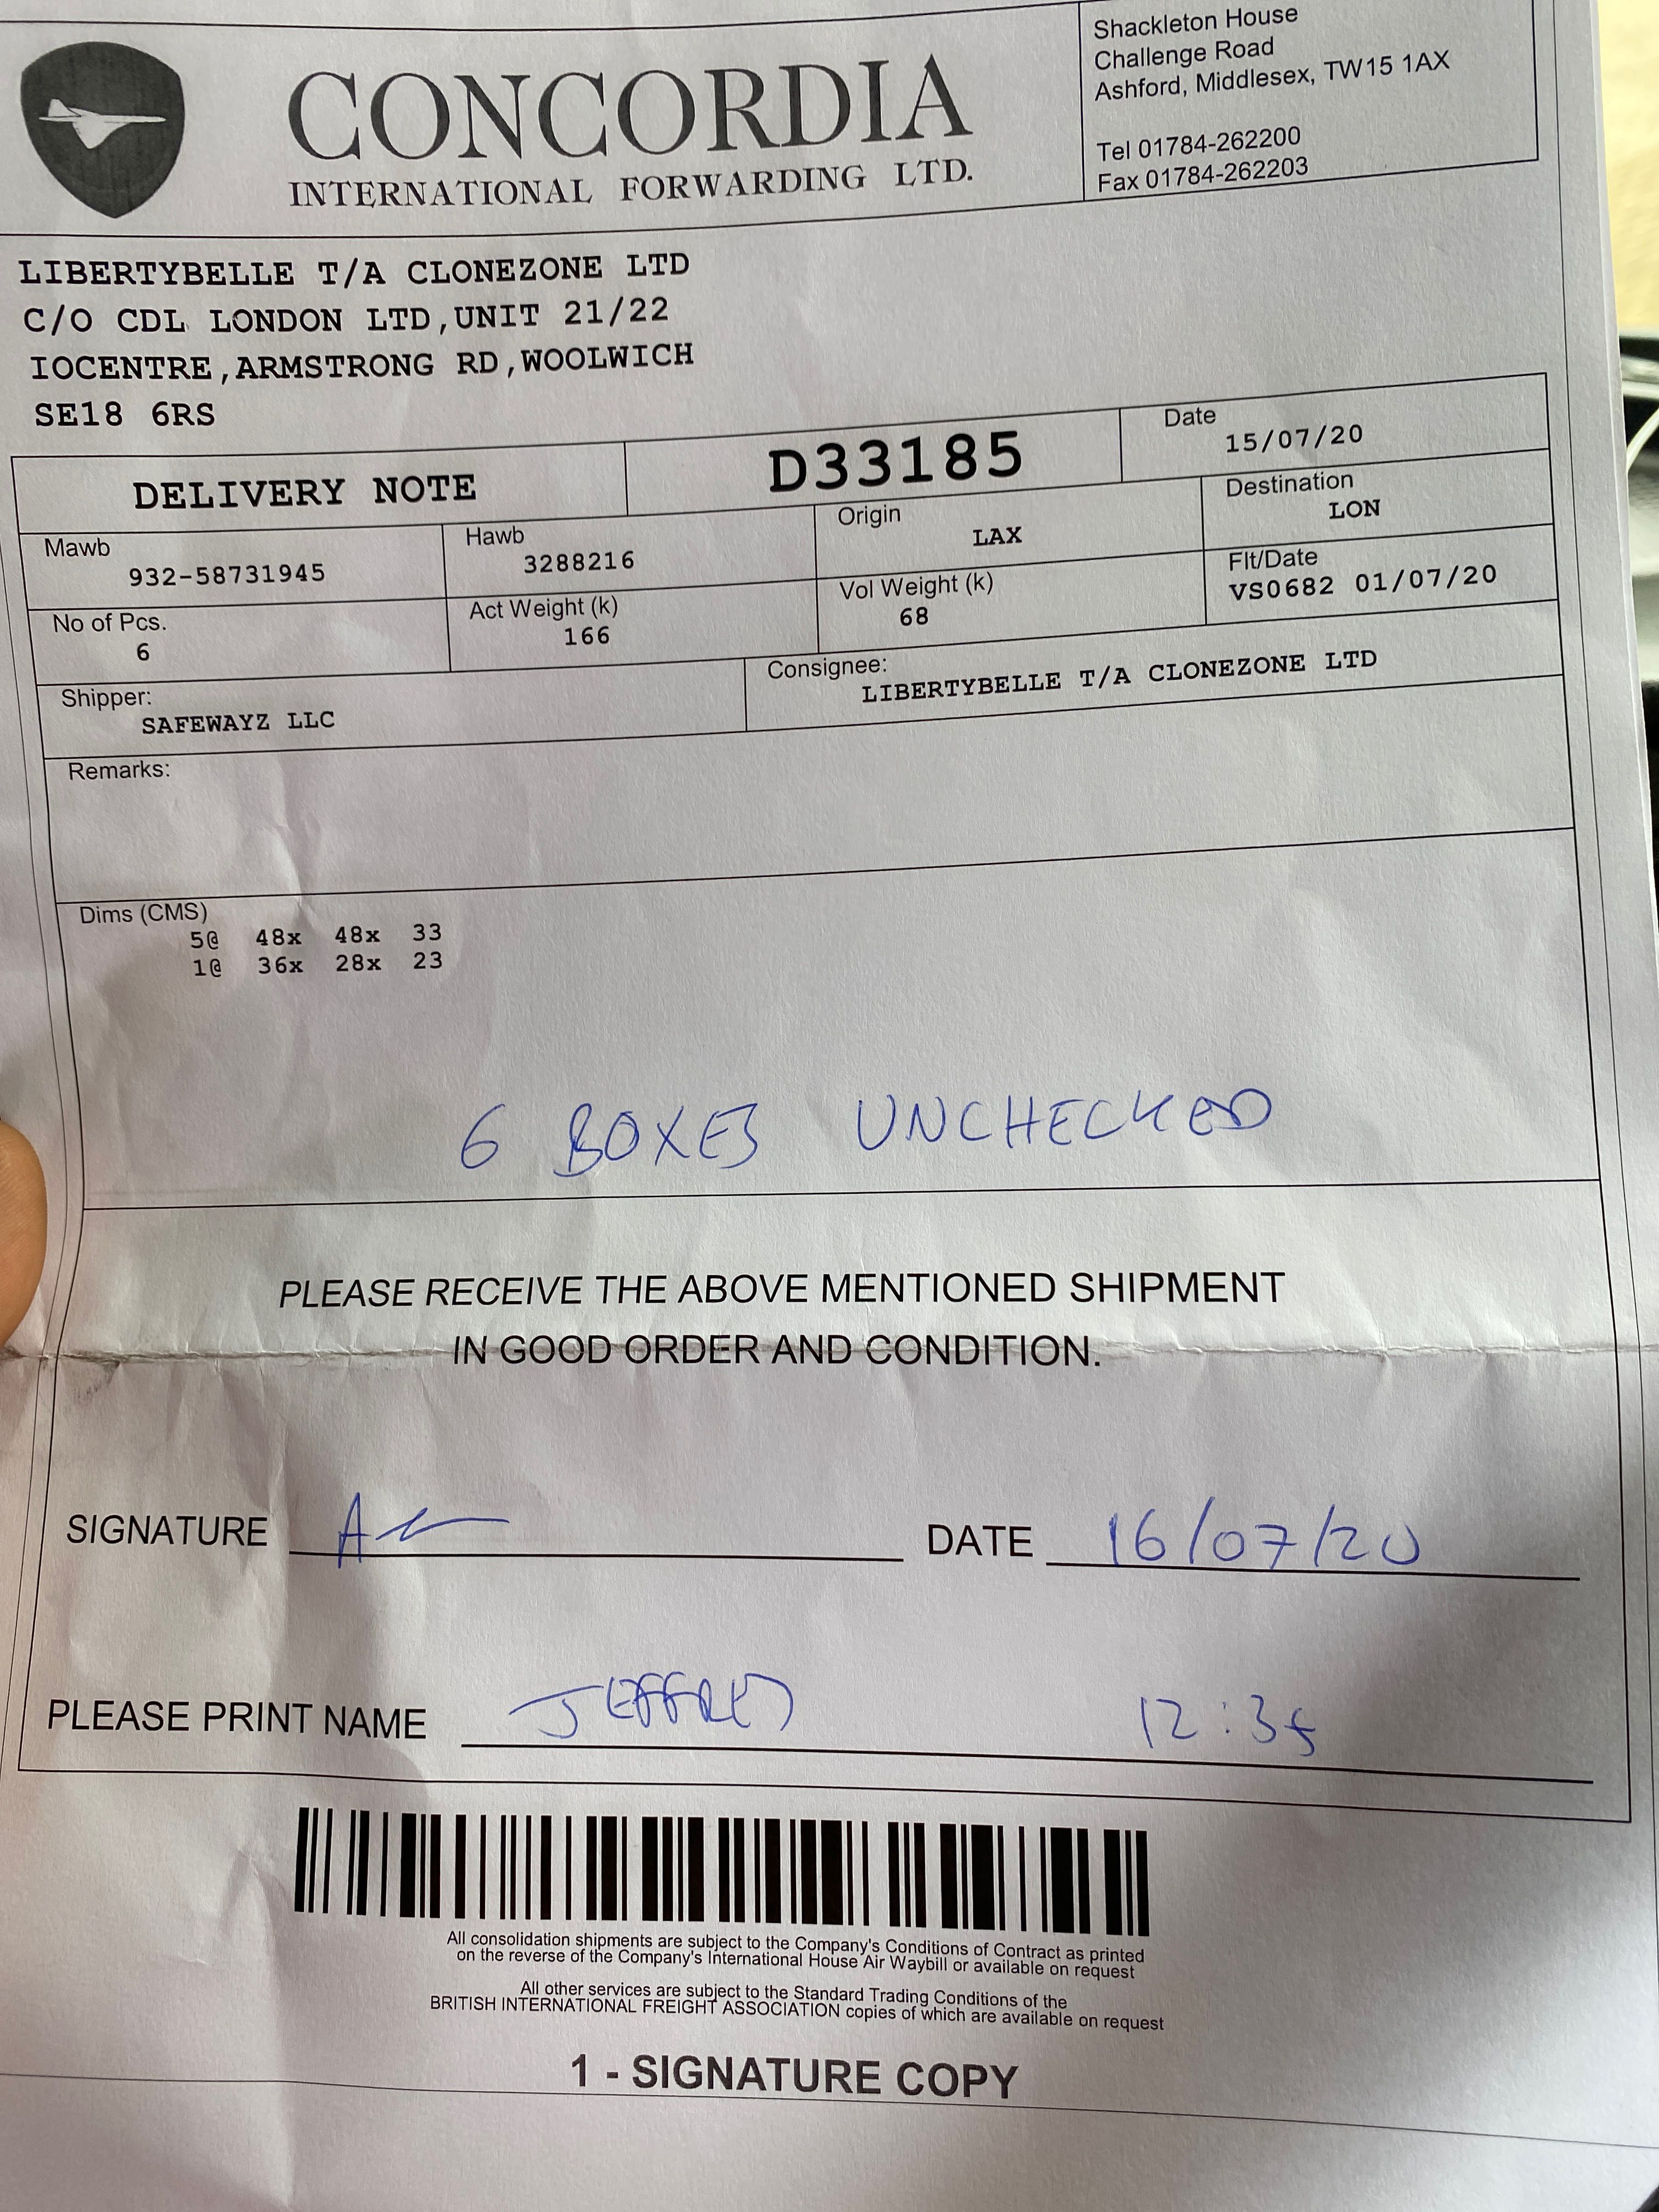 CONCORDIA
INTERNATIONAL FORWARDING LTD.
Shackleton House
Challenge Road
Ashford, Middlesex, TW15 1AX
Tel 01784-262200
Fax 01784-262203
LIBERTYBELLE T/A CLONEZONE LTD
C/O CDL LONDON LTD,UNIT 21/22
IOCENTRE,ARMSTRONG RD,WOOLWICH
SE18 6RS
DELIVERY NOTE
D33185
Date
15/07/20
Mawb
932-58731945
Hawb
3288216
Origin
LAX
Destination
LON
No of Pcs.
6
Act Weight (k)
166
Vol Weight (k)
68
Flt/Date
VS0682 01/07/20
Shipper:
SAFEWAYZ LLC
Consignee:
LIBERTYBELLE T/A CLONEZONE LTD
Remarks:
Dims (CMS)
5@ 48x 48x 33
1@ 36x 28x 23
6 BOXES UNCHECKED
PLEASE RECEIVE THE ABOVE MENTIONED SHIPMENT
IN GOOD ORDER AND CONDITION.
SIGNATURE
DATE 16/07/20
PLEASE PRINT NAME JEFFREY 12:35
All consolidation shipments are subject to the Company's Conditions of Contract as printed
on the reverse of the Company's International House Air Waybill or available on request
All other services are subject to the Standard Trading Conditions of the
BRITISH INTERNATIONAL FREIGHT ASSOCIATION copies of which are available on request
1 - SIGNATURE COPY